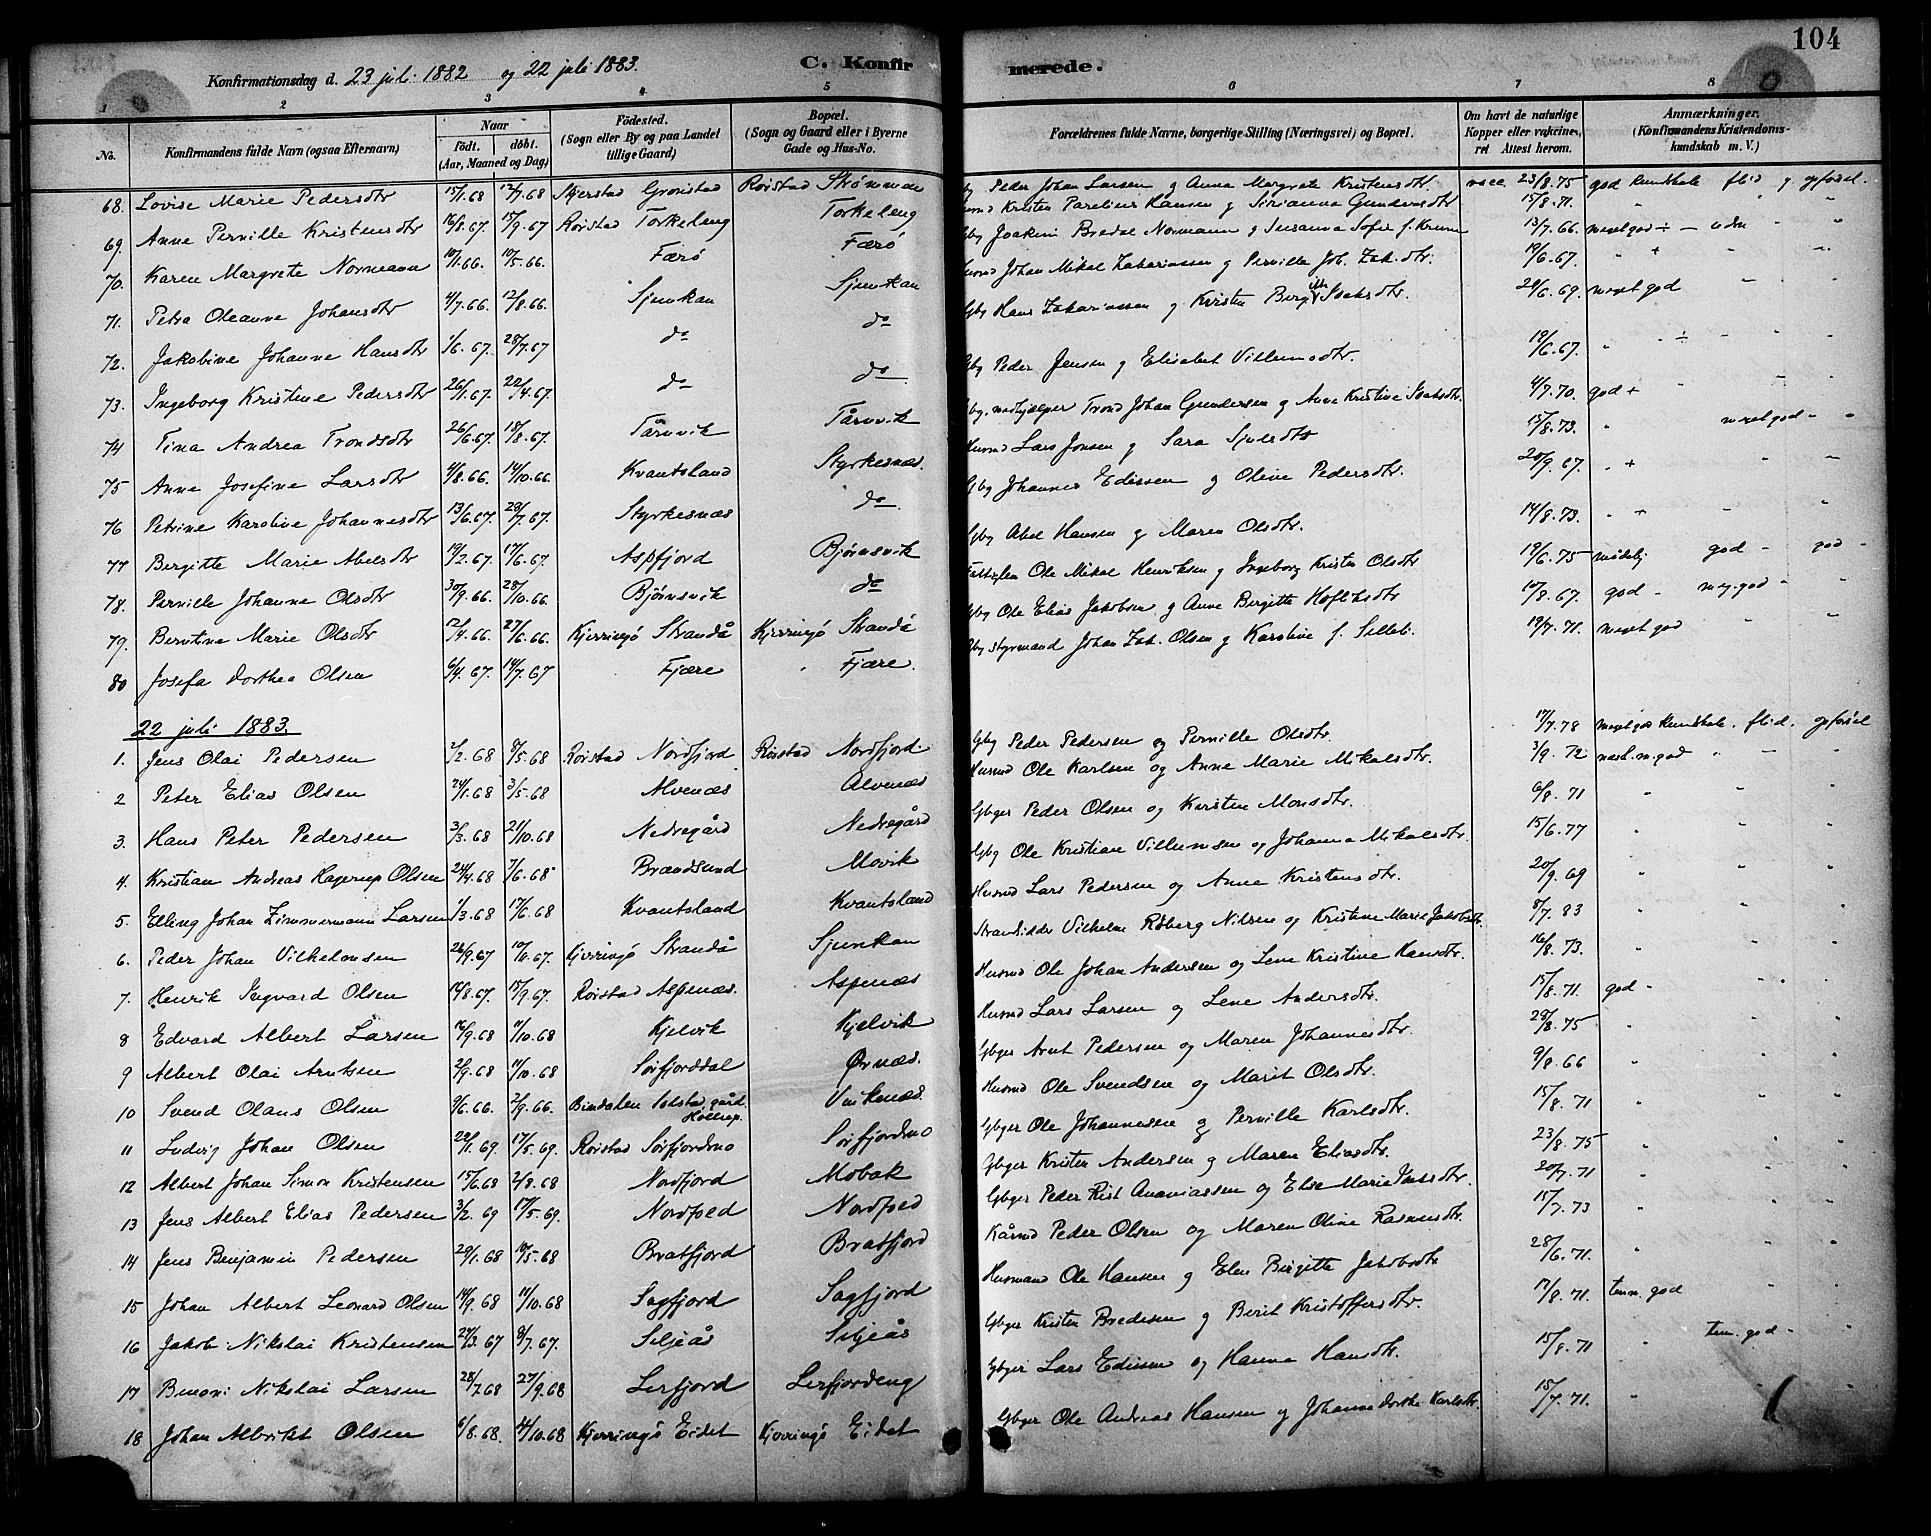 104
Konfirmationsdag d. 23 juli 1882 og 22 juli 1883. C. Konfirmerede.
1 2 3 4 5 6 7 8
No. Konfirmandens fulde Navn (ogsaa Efternavn) Naar födt. döbt. (Aar, Maaned og Dag) Födested. (Sogn eller By og paa Landet tillige Gaard) Bopæl. (Sogn og Gaard eller i Byerne Gade og Hus-No. Forældrenes fulde Navne, borgerlige Stilling (Næringsvei) og Bopæl. Om havt de naturlige Kopper eller vakcineret. Attest herom. Anmærkninger. (Konfirmandens Kristendomskundskab m. V.)
68. Lovise Marie Pedersdtr 15/1.68 12/7.68 Skjerstad Rørstad Strømmen Gbg Peder Johan Larsen og Anna Margrete Kristensdtr. vacc. 23/8.75 god kundskab flid og opførsel
69. Anne Pernille Kristensdtr 16/8.67. 15/9.67 Rørstad Torkeleng Torkeleng Husmd Kristen Parelius Hansen og Sirianna Gundersdtr 15/8.71. " " "
70. Karen Margrete Normann 10/1.66. 10/5.66. Færö Færö Gbg Joakim Bredal Normann og Susanna Sofie f. 13/7.66. meget god ÷ – uden " "
71. Petra Oleanne Johansdtr 4/7.66. 12/8.66. Sjunkan Sjunkan Husmd Johan Mikal Zakariassen og Pernille Joh. Zak.dtr. 19/6.67. " + " "
72. Jakobine Johanne Hansdtr 1/6.67. 28/7.67 do do Gbg Hans Zakariassen og Kristen Birgith Isaksdtr. 29/6.69. meget god " "
73. Ingeborg Kristine Pedersdtr 26/1.67. 22/4.67. do do Gbg Peder Jensen og Elisabet Villumsdtr. 19/6.67. " ÷ – " "
74 Tina Andrea Trondsdtr 26/6.67. 18/8.67. Tårnvik Tårnvik Gbg, medhjælper Trond Johan Gundersen og Anne Kristine Isaksdtr. 4/7.70. god + " " "
75 Anne Josefine Larsdtr 4/8.66. 14/10.66. Kvantsland Styrkesnæs. Husmd Lars Jonsen og Sara Sjulsdtr 15/8.73. " meget god " "
76 Petrine Karoline Johannesdtr 13/6.67. 28/7.67. Styrkesnæs do Gbg Johannes Edissen og Oline Pedersdtr. 20/9.67. " + " "
77 Bergitte Marie Abelsdtr 19/2.67 17/6.67 Aspfjord Bjørnsvik Gbg Abel Hansen og Maren Olsdtr. 14/8.73. " + " "
78. Pernille Johanne Olsdtr 30/9.66. 28/10.66. Bjørnsvik do Ole Mikal Henriksen og Ingeborg Kristen Olsdtr 19/6.75 mådelig god – god –
79. Berntine Marie Olsdtr 12/4.66. 27/6.66. Kjerringö Strandå Kjerringö Strandå Gbg Ole Elias Jakobsen og Anne Birgitte 10/8.67. god – meg. god " "
80 Josefa Dorthea Olsen 6/4.67. 14/7.67 " Fjære " Fjære. Gbg Styrmand Johan Zak. Olsen og Karoline f. 19/7.71. meget god " "
22 juli 1883.
1. Jens Olai Pedersen 2/2.68 8/5.68 Rørstad Nordfjord Rørstad Nordfjord. Gbg Peder Pedersen og Pernille Olsdtr. 17/7.78 meget god kundskab. flid. opførsel
2 Peter Elias Olsen 24/1.68 3/5.68 Alvenæs Alvenæs Husmd Ole Karlsen og Anne Marie Mikalsdtr. 3/9.72 næst. m. god " – "
3. Hans Peter Pedersen 3/3.68 21/10.68 Nedregård Nedregård Gbger Peder Olsen og Kirsten Monsdtr. 6/8.71 " " "
4. Kristian Andreas Hagerup Olsen 24/4.68 7/6.68 Brændsund Movik Gbg Ole Kristian Villumsen og Johanna Mikalsdtr. 15/6.77 " " "
5. Elling Johan Zimmermann Larsen 1/3.68 17/6.68 Kvantsland Kvantsland Husmd Lars Pedersen og Anne Kristensdtr. 20/9.69 " " "
6. Peder Johan Vilhelmsen 26/9.67 10/11.67. Kjerringö Strandå Sjunkan Strandsidder Vilhelm Röberg Nilsen og Kristine Marie Jakobsdtr. 8/7.83 " " "
7. Henrik Ingvard Olsen 14/8.67. 15/9.67. Rørstad Aspenæs. Aspenæs Husmd Ole Johan Andersen og Lene Kristine Hansdtr. 16/8.73. " " "
8 Edvard Albert Larsen 16/9.68 11/10.68 Kjelvik Kjelvik Husmd Lars Larsen og Lene Andersdtr. 15/8.71 god – " " "
9 Albert Olai Arntsen 2/9.68 11/10.68 Sörfjorddal Örnæs. Gbger Arnt Pedersen og Maren Johannesdtr. 28/8.75 " " "
10 Svend Olaus Olsen 9/6.66. 2/9.66. Bindalen Solstad gård. Veikenæs. Husmd Ole Svendsen og Marit Olsdtr. 9/8.66 " " "
11 Ludvig Johan Olsen 29/1.69 17/5.69. Rørstad Sörfjordmo Sörfjordmo Gbger Ole Johannesen og Pernille Karlsdtr. 15/8.71 " " "
12 Albert Johan Simon Kristensen 15/6.68 2/8.68 Nordfjord Mobak Gbger Kristen Andersen og Maren Eliasdtr. 23/8.75 " " "
13 Jens Albert Elias Pedersen 3/2.69 17/5.69. Nordfold Nordfold Gbger Peder Rist Ananiassen og Else Marie Isaksdtr. 20/7.71 " " "
14 Jens Benjamin Pedersen 29/1.68 10/5.68 Bratfjord Bratfjord Kårmd Peder Olsen og Maren Oline Rasmusdtr. 15/7.73 " " "
15 Johan Albert Leonard Olsen 14/9.68 11/10.68 Sagfjord Sagfjord Husmand Ole Hansen og Elen Birgitte Jakobsdtr 28/6.71. " " "
16 Jakob Nikolai Kristensen 27/3.67 8/7.67. Seljeås Seljeås Gbger Kristen Bredesen og Berit Kristoffersdtr. 17/8.71. tem. god " "
17 Benoni Nikolai Larsen 28/7.68 27/9.68 Lerfjord Lerfjordeng Gbger Lars Edissen og Hanna Hansdtr. 15/8.71 " tem. god – "
18 Johan Albrikt Olsen 6/8.68. 4/10.68 Kjerringö Eidet Kjerringö Eidet Gbger Ole Andreas Hansen og Johanna Dorthe Karlsdtr. 15/7.71. " " "